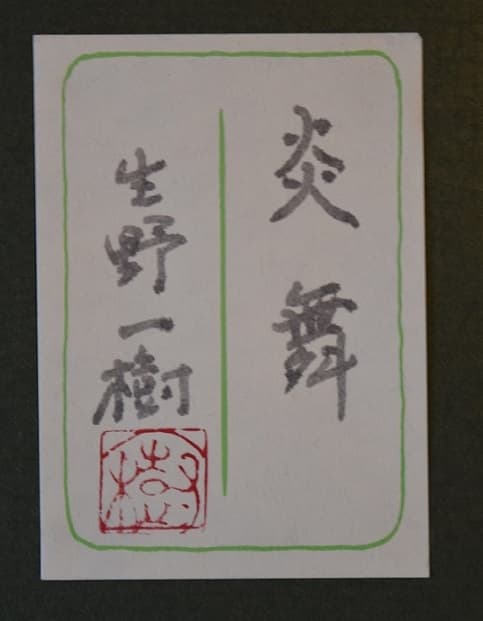 炎舞
生野一樹
樹